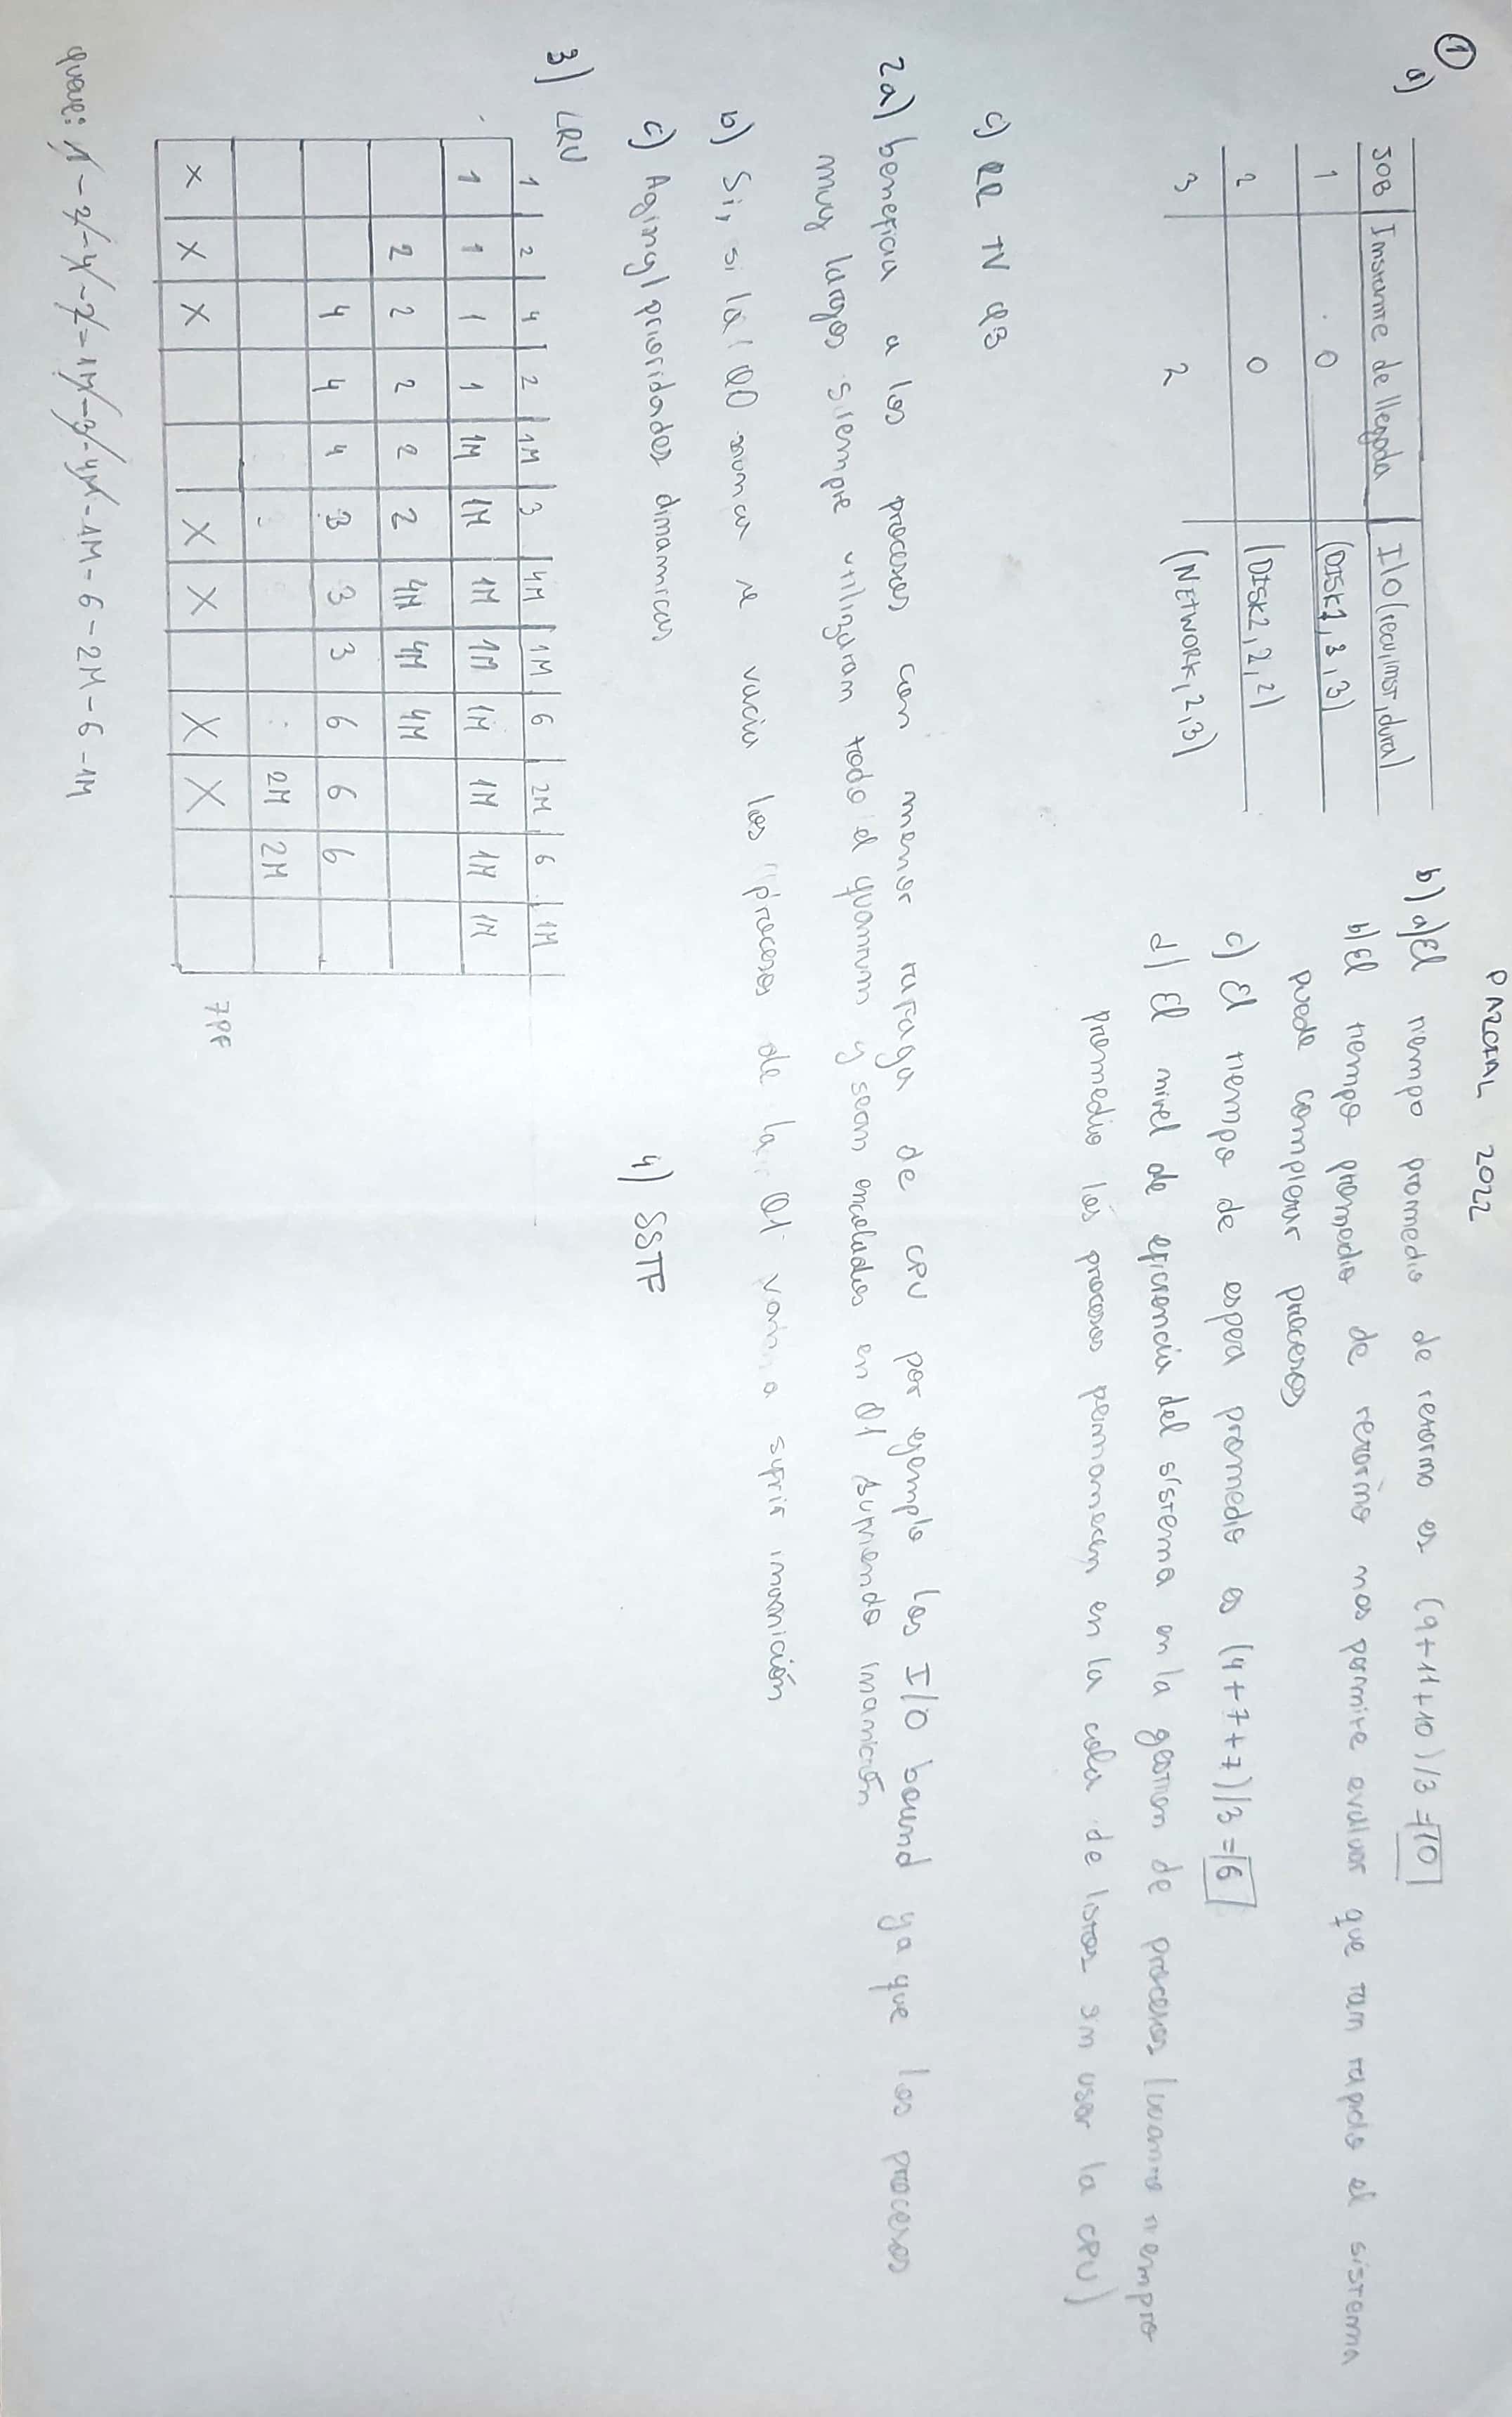 PARCIAL 2022
① a)
JOB | Instante de llegada | I/O (recu, inst, dura)
1 | 0 | (DISK1, 3, 3)
2 | 0 | (DISK2, 2, 2)
3 | 2 | (NETWORK, 2, 3)
b) a) El tiempo promedio de retorno es (9+11+10)/3 = 10
b) El tiempo promedio de retorno nos permite evaluar que tan rapido el sistema
puede completar procesos
c) El tiempo de espera promedio es (4+7+7)/3 = 6
d) El nivel de eficiencia del sistema en la gestion de procesos (cuanto tiempo
promedio los procesos permanecen en la cola de listos sin usar la CPU)
c) RR TV Q3
2a) beneficia a los procesos con menor rafaga de CPU por ejemplo los I/O bound ya que los procesos
muy largos siempre utilizaran todo el quantum y sean encolados en Q1 sufriendo inanición
b) Si, si la Q0 nunca se vacia los procesos de la Q1 van a sufrir inanición
c) Aging/prioridades dinamicas
3) LRU
1 | 2 | 4 | 2 | 1M | 3 | 4M | 1M | 6 | 2M | 6 | 1M
1 | 1 | 1 | 1 | 1M | 1M | 1M | 1M | 1M | 1M | 1M | 1M
2 | 2 | 2 | 2 | 2 | 4M | 4M | 4M
4 | 4 | 4 | 3 | 3 | 3 | 6 | 6 | 6
2M | 2M
X | X | X | X | X | X | X
7PF
queue: 1 - 2 - 4 - 2 - 1M - 3 - 4M - 1M - 6 - 2M - 6 - 1M
4) SSTF